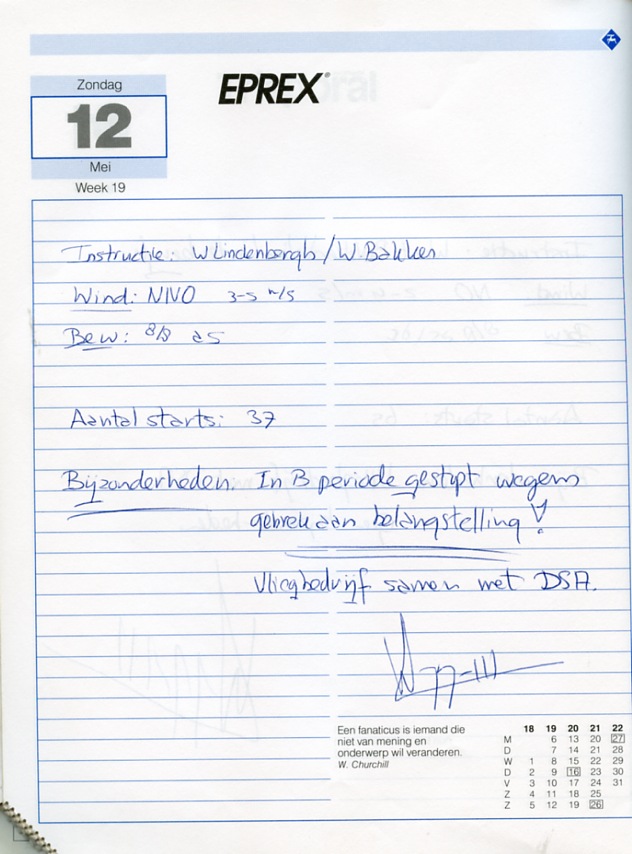 EPREX
Zondag
12
Mei
Week 19
Instructie: W Lindenbergh / W. Bakker
Wind: NNO 3-5 m/s
Bew: 8/8 as
Aantal starts: 37
Bijzonderheden: In B periode gestopt wegens
gebrek aan belangstelling!
Vliegbedrijf samen met DSA.
Een fanaticus is iemand die
niet van mening en
onderwerp wil veranderen.
W. Churchill
18 19 20 21 22
M 6 13 20 27
D 7 14 21 28
W 1 8 15 22 29
D 2 9 16 23 30
V 3 10 17 24 31
Z 4 11 18 25
Z 5 12 19 26